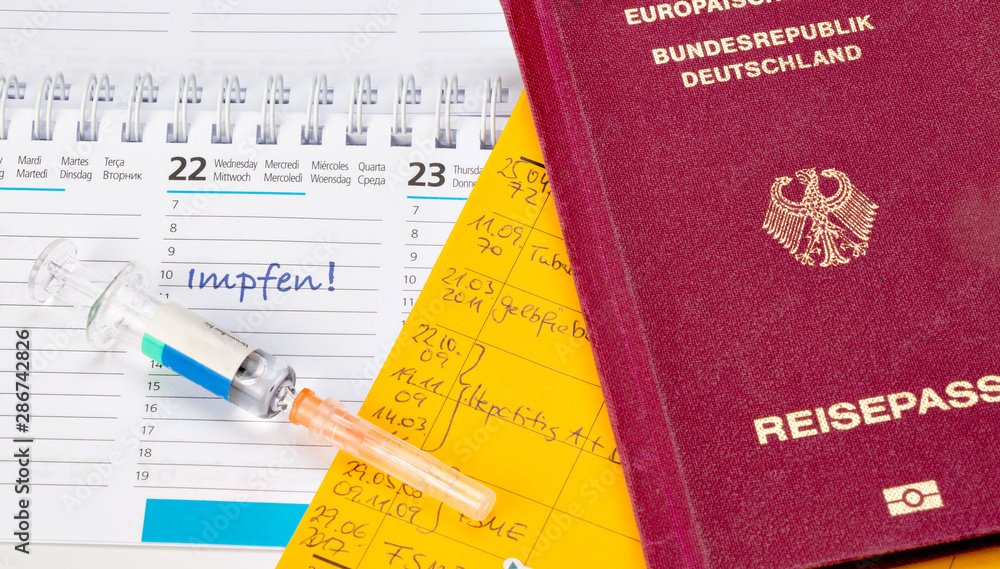 EUROPÄISCH
BUNDESREPUBLIK
DEUTSCHLAND
REISEPASS
Mardi Martes Terça
Martedì Dinsdag Вторник
22 Wednesday Mercredi Miércoles Quarta
Mittwoch Mercoledì Woensdag Среда
23 Thursda
Donne
7
8
9
10
impfen!
14
15
16
17
18
19
7
8
9
10
25.04
72
11.09.
70 Tube
21.03
2011 gelbfieb
22.10.
09
19.11
09 Hepatitis A +
14.03
29.03.00
09.11.09 FSME
29.06
2017 FSM
Adobe Stock | #286742826